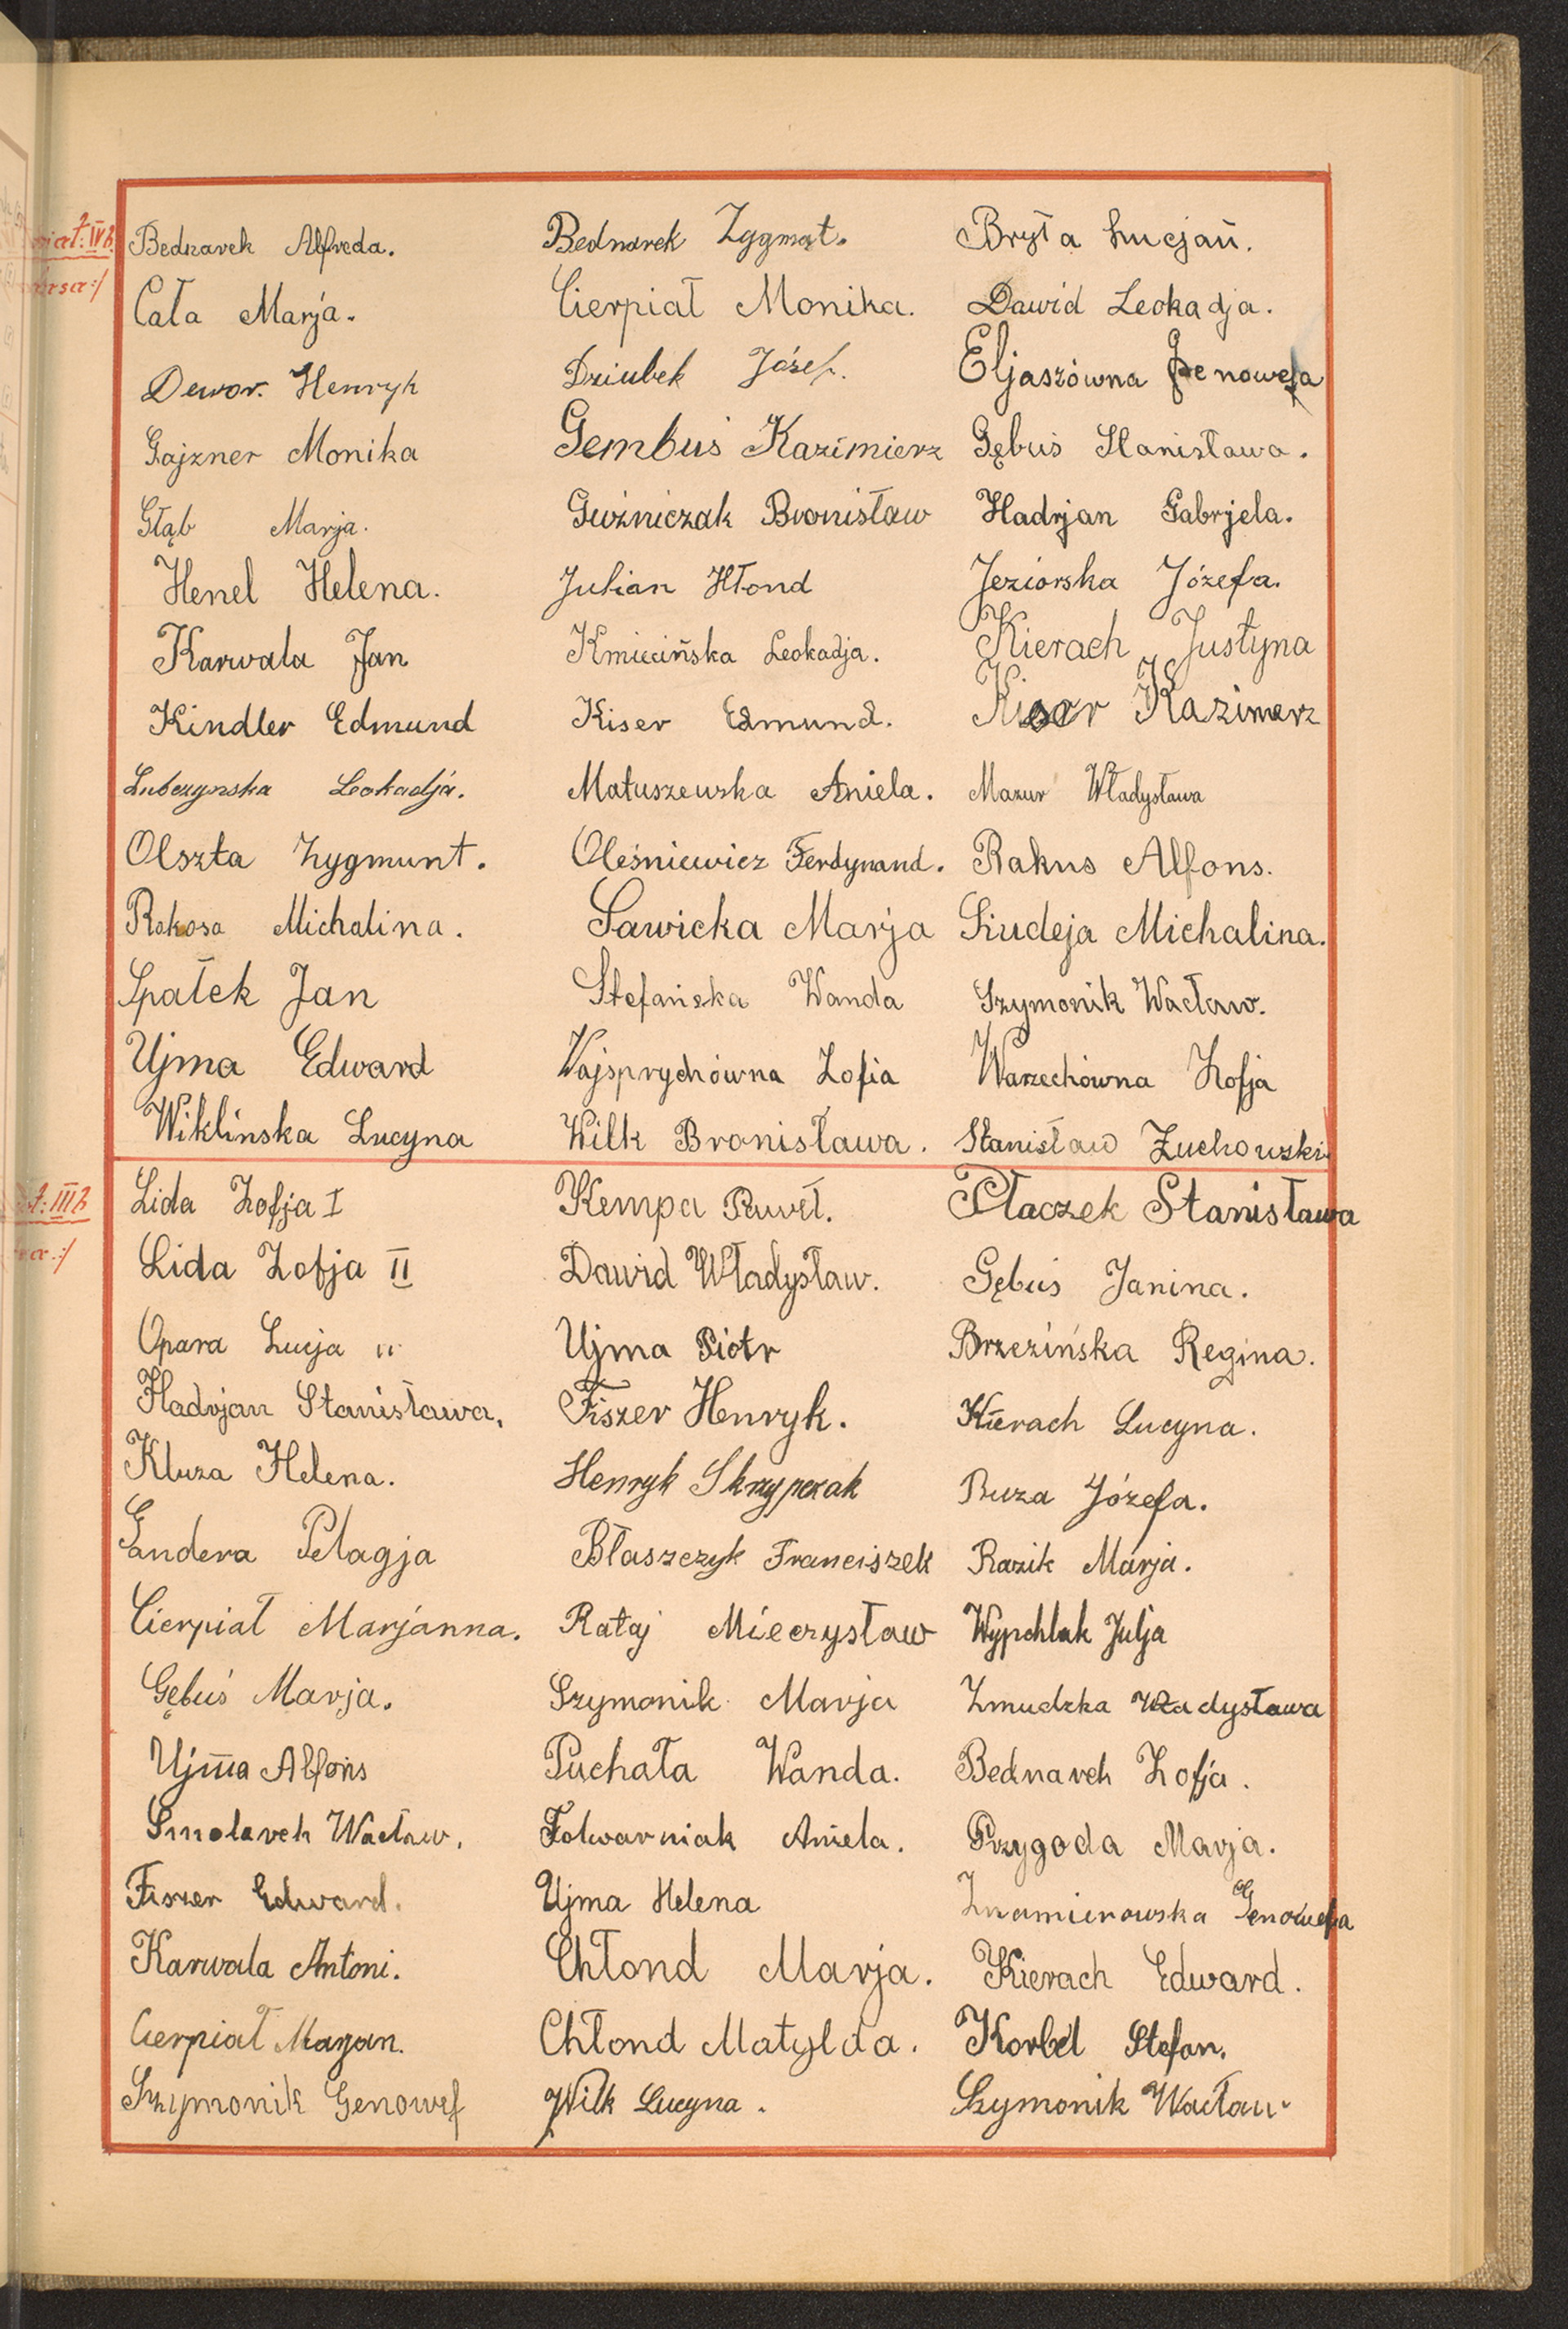 Bednarek Alfreda. Bednarek Zygmąt. Bryła Lucjań.
Cała Marja. Cierpiał Monika. Dawid Leokadja.
Dewor. Henryk Dziubek Józef. Eljaszówna Genowefa
Gajzner Monika Gembuś Kazimierz Gębuś Stanisława.
Głąb Marja. Guźniczak Bronisław Hadrjan Gabrjela.
Henel Helena. Julian Hłond Jeziorska Józefa.
Karwala Jan Kmiecińska Leokadja. Kierach Justyna
Kindler Edmund Kiser Edmund. Kazimerz
Lubczynska Leokadja. Matuszewska Aniela. Mazur Władysława
Olszta Zygmunt. Oleśniewicz Ferdynand. Rakus Alfons.
Rokosa Michalina. Sawicka Marja Siudeja Michalina.
Spałek Jan Stefańska Wanda Szymonik Wacław.
Ujma Edward Wajsprychówna Zofia Warzechówna Zofja
Wiklinska Lucyna Wilk Bronisława. Stanisław Żuchowski
IVb.
Lida Zofja I Kempa Paweł. Płaczek Stanisława
IIIb
Lida Zofja II Dawid Władysław. Gębuś Janina.
Opara Lucja " Ujma Piotr Brzezińska Regina.
Hadrjan Stanisława. Fiszer Henryk. Kierach Lucyna.
Kluza Helena. Henryk Skrzypczak Buza Józefa.
Gandera Pelagja Błaszczyk Franciszek Razik Marja.
Cierpiał Marjanna. Rataj Mieczysław Wypchlak Julja
Gębuś Marja. Szymonik Marja Zmudzka Władysława
Ujma Alfons Puchała Wanda. Bednarek Zofja.
Smolarek Wacław. Folwarniak Aniela. Przygoda Marja.
Fiszer Edward. Ujma Helena Znamierowska Genowefa
Karwala Antoni. Chłond Marja. Kierach Edward.
Cierpiał Marjan. Chłond Matylda. Korbel Stefan.
Szymonik Genowef Wilk Lucyna. Szymonik Wacław